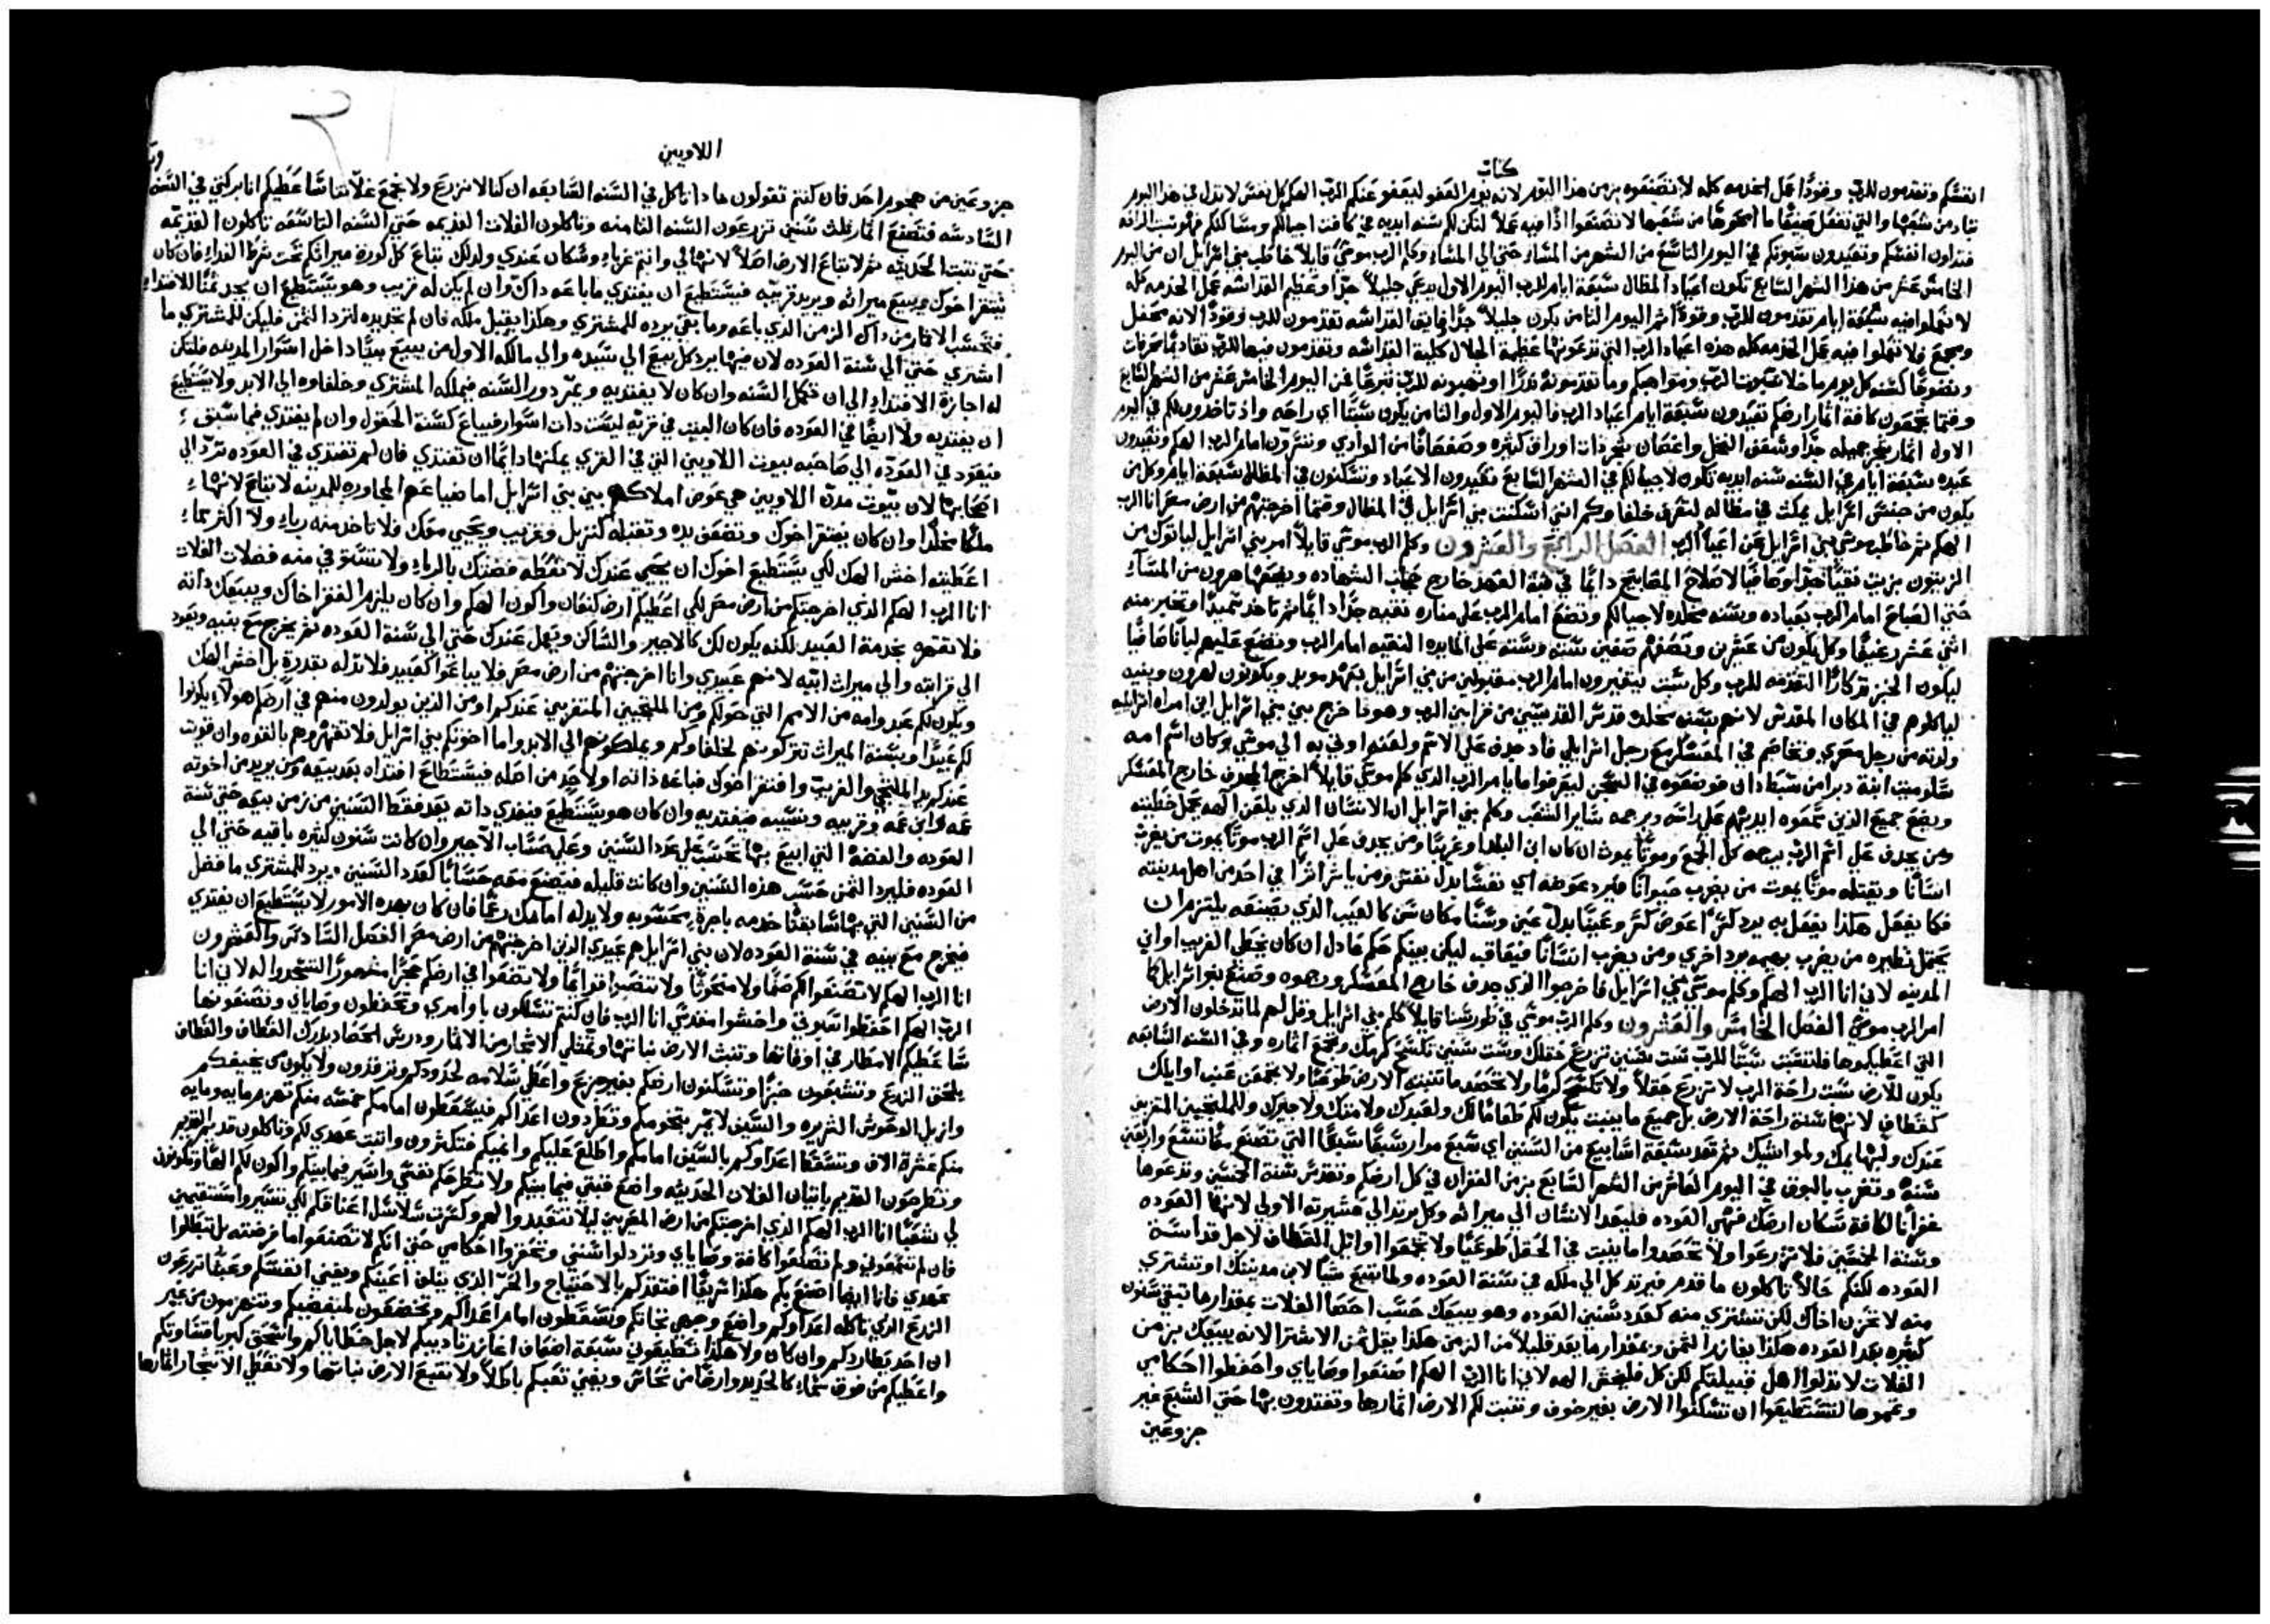 كتاب
انفسكم وتقدمون للرب وقودًا كل الخدمه كله لا تصنعوه بزمن هذا اليوم لانه يوم العفو ليعفو عنكم الرب الهكم كل نفس لا تذل في هذا اليوم
تباد من شعبها والتي تفعل صنيعًا ما امحوها من شعبها لا تصنعوا اذًا فيه عملاً لتكن لكم سنه ابديه في كافة اجيالكم ومساكنكم فهو سبت الراحه
فتذلون انفسكم وتعيدون سبوتكم في اليوم التاسع من الشهر من المساء حتى الي المساء وكلم الرب موسي قايلاً خاطب بني اسرايل ان من اليوم
الخامس عشر من هذا الشهر السابع تكون اعياد المظال سبعة ايام للرب اليوم الاول يدعي جليلاً جدًا وعظيم القداسه عمل الخدمه كله
لا تعملوا فيه سبعة ايام تقدمون للرب وقودًا ثم اليوم الثامن يكون جليلاً جدًا فايق القداسه تقدمون للرب وقودًا لانه محفل
ومجمع ولا تعملوا فيه عمل الخدمه كله هذه اعياد الرب التي تدعونها عظيمة الجلال كلية القداسه وتقدمون فيها للرب تقادمًا محرقات
ونضوحًا كسنه كل يوم ما خلا سبوت الرب ومواهبكم وما تقدمونه نذرًا او تهبونه للرب تبرعًا فمن اليوم الخامس عشر من الشهر السابع
وقتما تجمعون كافة اثمار ارضكم تعيدون سبعة ايام اعياد الرب فاليوم الاول والثامن يكون سبتًا اي راحه واذ تاخدون لكم في اليوم
الاول اثمار شجر جميله جدًا وسعف النخل واغصان شجر ذات اوراق كثيره وصفصافًا من الوادي وتسرّون امام الرب الهكم وتعيدون
عيده سبعة ايام في السنه سنه ابديه تكون لاجيالكم في الشهر السابع تعيدون الاعياد وتسكنون في المظال سبعة ايام وكل من
يكون من جنس اسرايل يمكث في مظاله لتعرف خلفاوكم انني اسكنت بني اسرايل في المظال وقتما اخرجتهم من ارض مصر انا الرب
الهكم ثم خاطب موسي بني اسرايل عن اعياد الرب الفصل الرابع والعشرون وكلم الرب موسي قايلاً امر بني اسرايل لياتوك من
الزيتون بزيت نقيًا جدًا وصافيًا لاصلاح المصابيح دايمًا في قبة العهد خارج حجاب الشهاده ويضعها هرون من المساء
حتي الصباح امام الرب بعباده وبسنه مخلده لاجيالكم وتصنع امام الرب علي مناره نقيه جدًا دايمًا ثم تاخد سميدًا وتخبز منه
اثني عشر رغيفًا وكل يكون من عشرين وتضعهم صفين سته وسته علي المايده النقيه امام الرب وتضع عليهم لبانًا صافيًا
ليكون الخبز تذكارًا لتقدمه للرب وكل سبت يتغيرون امام الرب مقبولين من بني اسرايل بعهد موبد ويكونون لهرون وبنيه
لياكلوهم في المكان المقدس لانهم بسنه مخلده قدس القديسين من قرابين الرب وهودا خرج بين بني اسرايل ابن امراه اسرايليه
ولدته من رجل مصري وتخاصم في المعسكر مع رجل اسرايلي فاد جدف علي الاسم ولعنه اوتي به الي موسي وكان اسم امه
سلوميت ابنة دبرا من سبط دان فوضعوه في السجن ليعرفوا ما يامر الرب الذي كلم موسي قايلاً اخرج المجدف خارج المعسكر
ويضع جميع الذين سمعوه ايديهم علي راسه ويرجمه ساير الشعب وكلم بني اسرايل ان الانسان الذي يلعن الهه يحمل خطيته
ومن يجدف علي اسم الرب يرجمه كل الجمع وموتًا يموت ان كان ابن البلد او غريبًا ومن يجدف علي اسم الرب موتًا يموت من يضرب
انسانًا ويقتله موتًا يموت من يضرب حيوانًا فليرد عوضه اي نفسًا بدل نفس ومن ياثر اثرًا في احد من اهل مدينته
فكما يفعل هكذا يفعل به يرد كسرًا عوض كسر وعينًا بدل عين وسنًا مكان سن كالعيب الذي يصنعه يلتزم ان
يحتمل نظيره من يضرب بهيمه يرد اخري ومن يضرب انسانًا فيعاقب ليكن بينكم حكم عادل ان كان يخطي الغريب او ابن
المدينه لاني انا الرب الهكم وكلم موسي بني اسرايل فاخرجوا الذي جدف خارج المعسكر ورجموه وصنع بنو اسرايل كما
امر الرب موسي الفصل الخامس والعشرون وكلم الرب موسي في طور سينا قايلاً كلم بني اسرايل وقل لهم لما تدخلون الارض
التي اعطيكموها فلتسبت سبتًا للرب ست سنين تزرع حقلك وست سنين تكسح كرمك وتجمع اثماره وفي السنه السابعه
يكون للارض سبت راحة الرب لا تزرع حقلاً ولا تكسح كرمًا ولا تحصد ما تنبته الارض طوعيًا ولا تجمعن عنب اوايلك
كقطاف لانها سنة راحة الارض بل جميع ما ينبت يكون لكم طعامًا لك ولعبدك ولامتك ولاجيرك وللملتجيين المتغربين
عندك ولبهايمك ولمواشيك ثم تعد سبعة اسابيع من السنين اي سبع مرار سبعًا سبعًا التي تصنع معًا تسع واربعين
سنةً وتضرب بالبوق في اليوم العاشر من الشهر السابع بزمن الغفران في كل ارضكم وتقدس سنة الخمسين وتدعوها
غفرانًا لكافة سكان ارضك فهي العوده فليعد الانسان الي ميراثه وكل يرتد الي عشيرته الاولي لانها العوده
وسنة الخمسين فلا تزرعوا ولا تحصدوا ما ينبت في الحقل طوعيًا ولا تجمعوا اوايل القطاف لاجل قداسة
العوده لكنكم حالاً تاكلون ما قدم فيرتد كل الي ملكه في سنة العوده ولما تبيع شيًا لابن مدينتك او تشتري
منه لا تحزن اخاك لكن تشتري منه كعدد سنين العوده وهو يبيعك حسب احصا الغلات بمقدار ما تبقي سنون
كثيره بعد العوده هكذا يفازد الثمن وبمقدار ما يعد قليلاً من الزمن هكذا يقل ثمن الاشترا لانه يبيعك بزمن
الغلات لا تذلوا اهل قبيلتكم لكن كل فليخش الهه لاني انا الرب الهكم اصنعوا وصاياي واحفظوا احكامي
وتمموها لتستطيعوا ان تسكنوا الارض بغير خوف وتنبت لكم الارض اثمارها وتغتدون بها حتي الشبع غير
جزوعين
اللاويين
جزوعين من هجوم احد فان كنتم تقولون ماذا ناكل في السنه السابعه ان كنا لا نزرع ولا نجمع غلاتنا ساعطيكم انا بركتي في السنه
السادسه فتصنع اثمار ثلث سنين تزرعون السنه الثامنه وتاكلون الغلات القديمه حتي السنه التاسعه تاكلون القديمه
حتي تنبت الحديثه ثم لا تباع الارض اصلاً لانها لي وانتم غرباء وسكان عندي ولذلك تباع كل كورة ميراثكم تحت شرط الفداء فان كان
يفتقر اخوك ويبيع ميراثه ويريد قريبه فيستطيع ان يفتدي ما باعه ذاك وان لم يكن له قريب وهو يستطيع ان يجد ثمنًا للافتداء
فتحسب الاثمار من ذاك الزمن الذي باعه وما بقي يرده للمشتري وهكذا يقبل ملكه فان لم تجد يده لترد الثمن فليكن للمشتري ما
اشتري حتي الي سنة العوده لان فيها يرد كل بيع الي سيده والي مالكه الاول من يبيع بيتًا داخل اسوار المدينه فلتكن
له اجازة الافتداء الي ان تكمل السنه وان كان لا يفتديه ويمر دور السنه فيملكه المشتري وخلفاوه الي الابد ولا يستطيع
ان يفتديه ولا ايضًا في العوده فان كان البيت في قريه ليست ذات اسوار فيباع كسنة الحقول وان لم يفتدي فيما سبق
فيعود في العوده الي صاحبه بيوت اللاويين التي في القري يمكنها دايمًا ان تفتدي فان لم تفتدي في العوده تردّ الي
اصحابها لان بيوت مدن اللاويين هي عوض املاكهم بين بني اسرايل اما ضياعهم المجاوره للمدينه لا تباع لانها
ملكًا مخلدًا وان كان يفتقر اخوك وتضعف يده وتقبله كنزيل وغريب ويحيي معك فلا تاخد منه رباء ولا اكثر مما
اعطيته اخش الهك لكي يستطيع اخوك ان يحيي عندك لا تعطه فضتك بالرباء ولا تستوفي منه فضلات الغلات
انا الرب الهكم الذي اخرجتكم من ارض مصر لكي اعطيكم ارض كنعان واكون الهكم وان كان يلزم الفقر اخاك ويبيعك ذاته
فلا تقهره بخدمة العبيد لكنه يكون لك كالاجير والساكن ويعمل عندك حتي الي سنة العوده ثم يخرج مع بنيه ويعود
الي قرابته والي ميراث ابيه لانهم عبيدي وانا اخرجتهم من ارض مصر فلا يباعوا كعبيد فلا تذله بقدرة بل اخش الهك
ويكون لكم عبد وامه من الامم التي حولكم ومن الملتجيين المتغربين عندكم او من الذين يولدون منهم في ارضكم هولاء يكونوا
لكم عبيدًا وبسنة الميراث تتركونهم لخلفاوكم ويملكونهم الي الابد واما اخوتكم بني اسرايل فلا تقهروهم بالقوه وان قويت
عندكم يد الملتجي والغريب وافتقر اخوك فباعه ذاته او لاحد من اهله فيستطاع افتداه بعد بيعه ومن يريد من اخوته
عمه وابن عمه وقريبه ونسيبه فيفتديه وان كان هو يستطيع فيفدي ذاته بعد فقط السنين من زمن بيعه حتي سنة
العوده والفضه التي ابيع بها تحسب علي عدد السنين وعلي حساب الاجير وان كانت سنون كثيره باقيه حتي الي
العوده فليرد الثمن حسب هذه السنين وان كانت قليله فيصنع معه حسابًا كعدد السنين ويرد للمشتري ما فضل
من السنين التي بها سابقًا خدمه باجرة محسوبه ولا يذله امامك رغمًا فان كان بهذه الامور لا يستطيع ان يفتدي
فيخرج مع بنيه في سنة العوده لان بني اسرايل هم عبيدي الذين اخرجتهم من ارض مصر الفصل السادس والعشرون
انا الرب الهكم لا تصنعوا لكم صنمًا ولا منحوتًا ولا تنصبوا قوايمًا ولا تضعوا في ارضكم حجرًا مشهورًا لتسجدوا له لاني انا
الرب الهكم احفظوا سبوتي واخشوا مقدسي انا الرب فان كنتم تسلكون باوامري وتحفظون وصاياي وتصنعونها
ساعطيكم الامطار في اوقاتها وتنبت الارض نباتها وتمتلي الاشجار من الاثمار ودرس الحصاد يدرك القطاف والقطاف
يلحق الزرع وتشبعون خبزًا وتسكنون ارضكم بغير جزع واعطي سلامه لحدودكم وترقدون ولا يكون من يخيفكم
وازيل الوحوش الشريره والسيف لا يمر بتخومكم وتطردون اعداكم فيسقطون امامكم خمسه منكم تهزم مايه ومايه
منكم عشرة الاف وتسقط اعداوكم بالسيف امامكم واطلع عليكم وانميكم فتكثرون واثبت عهدي لكم وتاكلون قديم القديم
وتطرحون القديم باتيان الغلات الحديثه واضع قبتي فيما بينكم ولا تطرحكم نفسي واسير فيما بينكم واكون لكم الهًا وتكونون
لي شعبًا انا الرب الهكم الذي اخرجتكم من ارض المصريين ليلا تتعبدوا لهم وكسرت سلاسل اعناقكم لكي تسيروا مستقيمين
فان لم تسمعوني ولم تصنعوا كافة وصاياي وترذلوا سنني وتحقروا احكامي حتي انكم لا تصنعوا ما فرضته بل تبطلوا
عهدي فانا ايضًا اصنع بكم هكذا سريعًا افتقدكم بالاحتياج والحرّ الذي يبلي اعينكم ويفني انفسكم وعبثًا تزرعون
الزرع الذي تاكله اعداوكم واضع وجهي تجاتكم وتسقطون امام اعداكم وتخضعون لمبغضيكم وتنهزمون من غير
ان احد يطاردكم وان كان ولا هكذا تطيعوني سبعة اضعاف ازيد تاديبكم لاجل خطاياكم واسحق كبريا قساوتكم
واعطيكم من فوق سماء كالحديد وارضًا من نحاس ويفني تعبكم باطلاً ولا تصنع الارض نباتها ولا تعطي الاشجار اثمارها